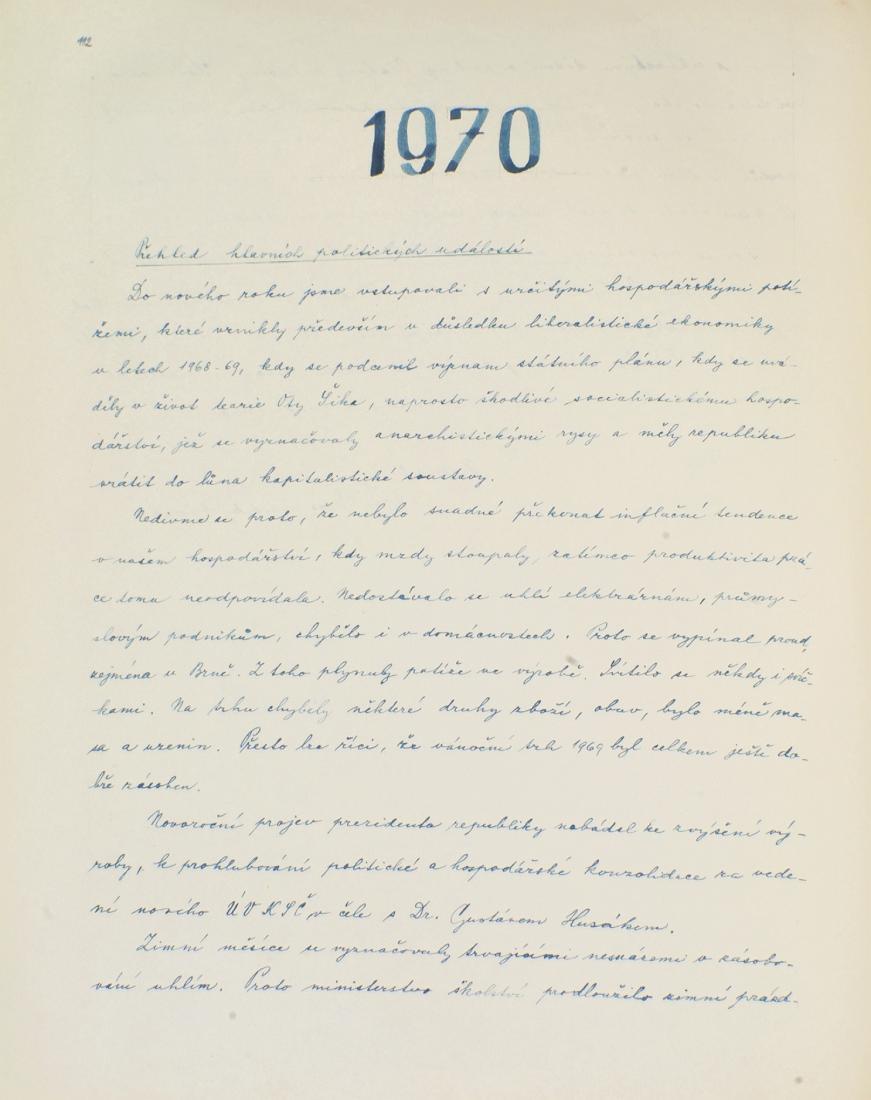 112
1970
Přehled hlavních politických událostí
Do nového roku jsme vstupovali s určitými hospodářskými potí-
žemi, které vznikly především v důsledku liberalistické ekonomiky
v letech 1968-69, kdy se podcenil význam státního plánu, kdy se uvá-
děly v život teorie Oty Šika, naprosto škodlivé socialistickému hospo-
dářství, jež se vyznačovaly anarchistickými rysy a měly republiku
vrátit do lůna kapitalistické soustavy.
Nedivme se proto, že nebylo snadné překonat inflační tendence
v našem hospodářství, kdy mzdy stoupaly, zatímco produktivita prá-
ce tomu neodpovídala. Nedostávalo se uhlí elektrárnám, průmy-
slovým podnikům, chybělo i v domácnostech. Proto se vypínal proud,
zejména v Brně. Z toho plynuly potíže ve výrobě. Svítilo se někdy i svíč-
kami. Na trhu chyběly některé druhy zboží, obuv, bylo méně ma-
sa a uzenin. Přesto lze říci, že vánoční trh 1969 byl celkem ještě do-
bře zásoben.
Novoroční projev prezidenta republiky nabádal ke zvýšení vý-
roby, k prohlubování politické a hospodářské konzolidace za vede-
ní nového ÚV KSČ v čele s Dr. Gustávem Husákem.
Zimní měsíce se vyznačovaly trvajícími nesnázemi v zásobo-
vání uhlím. Proto ministerstvo školství prodloužilo zimní prázd-